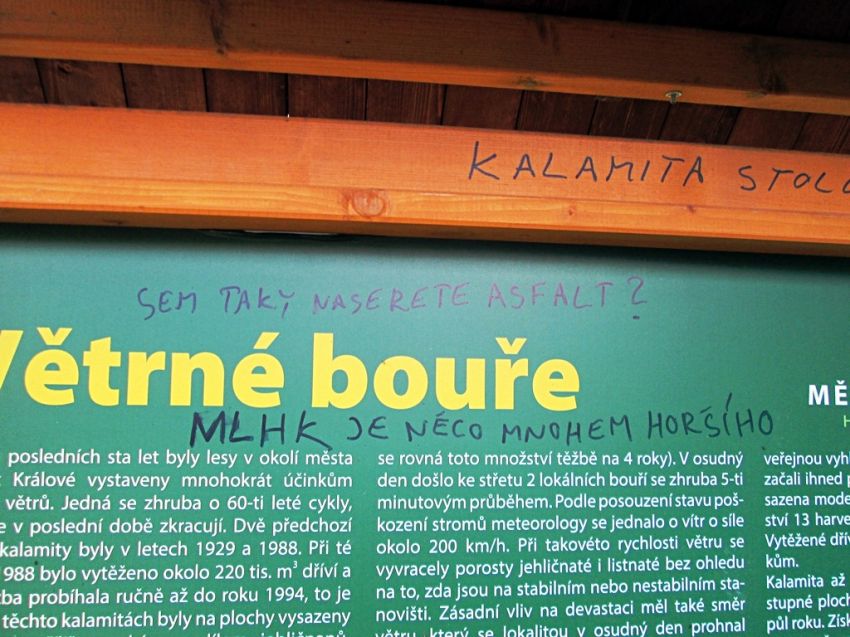 KALAMITA
SEM TAKY NASERETE ASFALT?
Větrné bouře
MLHK JE NĚCO MNOHEM HORŠÍHO
posledních sta let byly lesy v okolí města
Králové vystaveny mnohokrát účinkům
větrů. Jedná se zhruba o 60-ti leté cykly,
v poslední době zkracují. Dvě předchozí
kalamity byly v letech 1929 a 1988. Při té
1988 bylo vytěženo okolo 220 tis. m³ dříví a
probíhala ručně až do roku 1994, to je
těchto kalamitách byly na plochy vysazeny
se rovná toto množství těžbě na 4 roky). V osudný
den došlo ke střetu 2 lokálních bouří se zhruba 5-ti
minutovým průběhem. Podle posouzení stavu poš-
kození stromů meteorology se jednalo o vítr o síle
okolo 200 km/h. Při takovéto rychlosti větru se
vyvracely porosty jehličnaté i listnaté bez ohledu
na to, zda jsou na stabilním nebo nestabilním sta-
novišti. Zásadní vliv na devastaci měl také směr
větru, který se lokalitou v osudný den prohnal
MĚ
veřejnou
začali ihned
sazena
ství 13
Vytěžené
kům.
Kalamita až
stupné
půl roku.